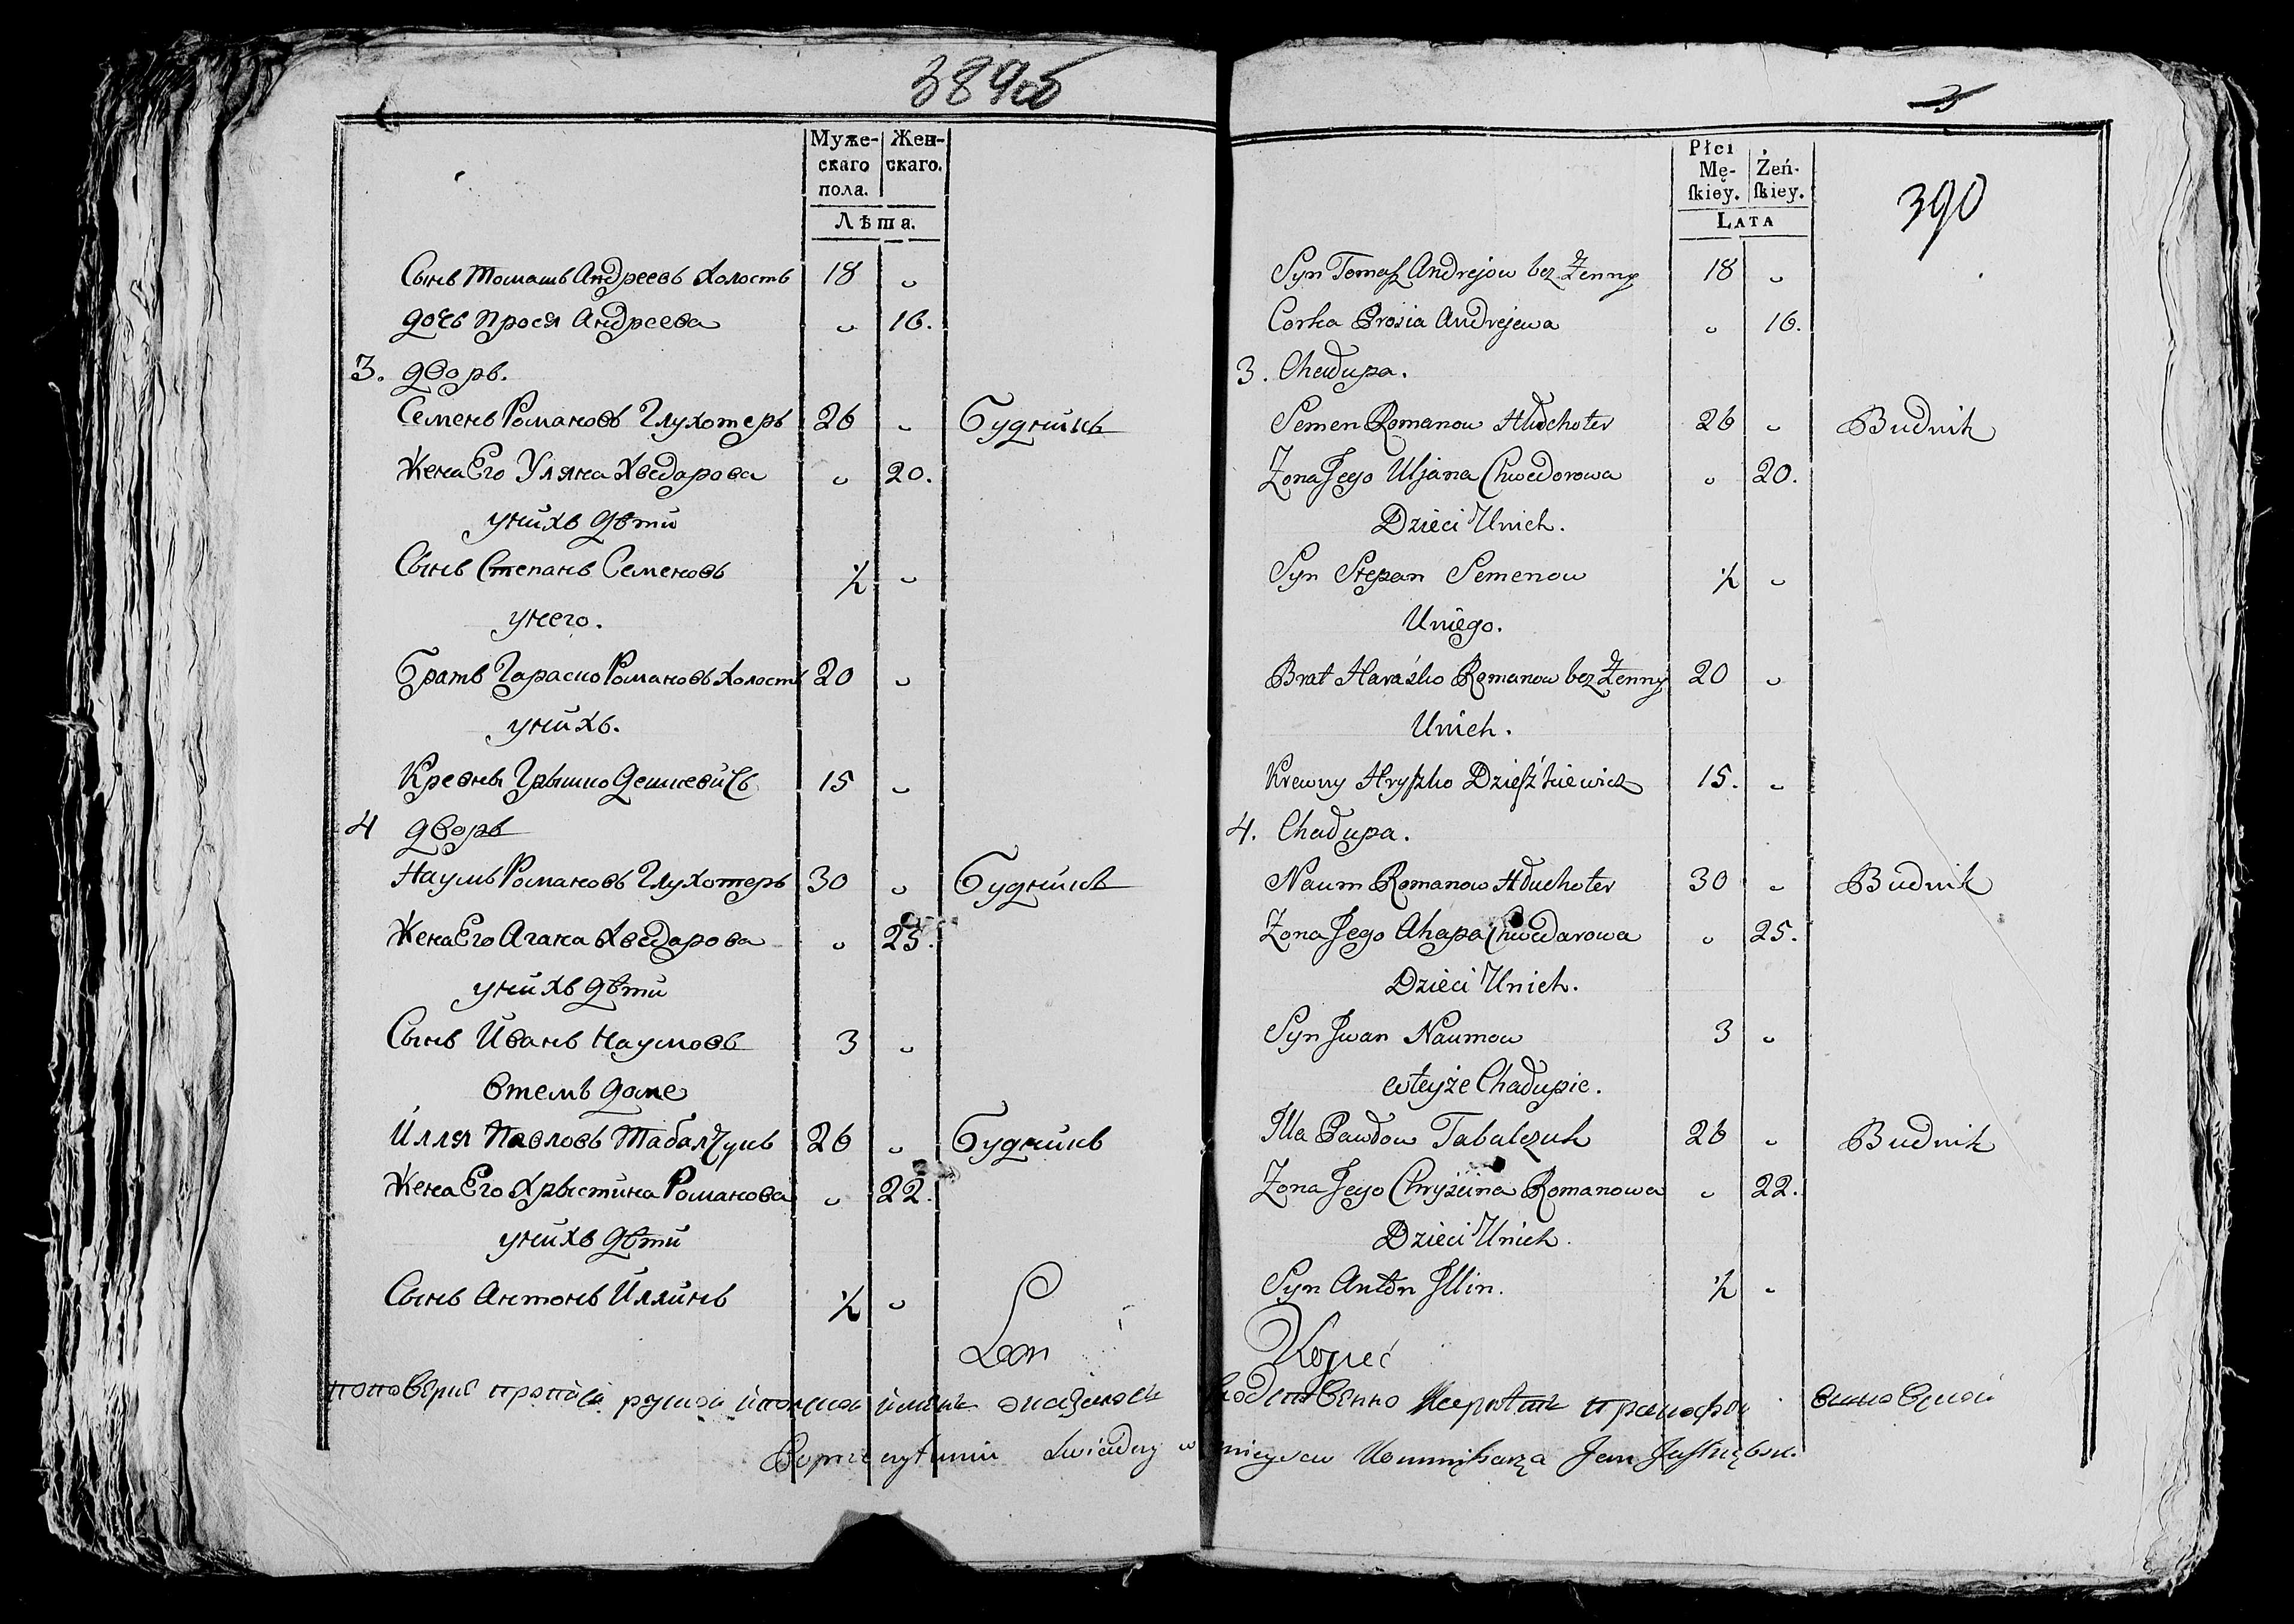 389об
Муже-
скаго
пола.
Жен-
скаго.
Лѣта.
Сынъ Томашъ Андреевъ Холостъ 18 „
дочь Прося Андреева „ 16.
3. дворъ.
Семенъ Романовъ Глухотеръ 26 „ Будникъ
Жена Его Уляна Хведарова „ 20.
унихъ дѣти
Сынъ Степанъ Семеновъ ½ „
унего.
Братъ Гараско Романовъ Холостъ 20 „
унихъ.
Кревны Грышко Дешкевичъ 15 „
4 дворъ
Наумъ Романовъ Глухотеръ 30 „ Будникъ
Жена Его Агапа Хведарова „ 25.
унихъ дѣти
Сынъ Иванъ Наумовъ 3 „
втемъ доме
Илля Павловъ Табалчукъ 26 „ Будникъ
Жена Его Хрыстина Романова „ 22.
унихъ дѣти
Сынъ Антонъ Иллинъ ½ „
3
390
Płci
Mę-
ſkiey.
Żeń-
ſkiey.
LATA
Syn Tomaſz Andrejow bez Żenny 18 „
Corka Prosia Andrejewa „ 16.
3. Chałupa.
Semen Romanow Hłuchoter 26 „ Budnik
Żona Jego Uljana Chwedorowa „ 20.
Dzieci Unich.
Syn Stepan Semenow ½ „
Uniego.
Brat Haraśko Romanow bez Żenny 20 „
Unich.
Krewny Hryſzko Dzieſzkiewicz 15. „
4. Chałupa.
Naum Romanow Hłuchoter 30 „ Budnik
Żona Jego Ahapa Chwedarowa „ 25.
Dzieci Unich.
Syn Jwan Naumow 3 „
wteyże Chałupie.
Jlla Pawłow Tabalczuk 26 „ Budnik
Żona Jego Chryścina Romanowa „ 22.
Dzieci Unich.
Syn Anton Jllin. ½ „
Leon Kopeć
w mieyscu Kommiſsarza Jan